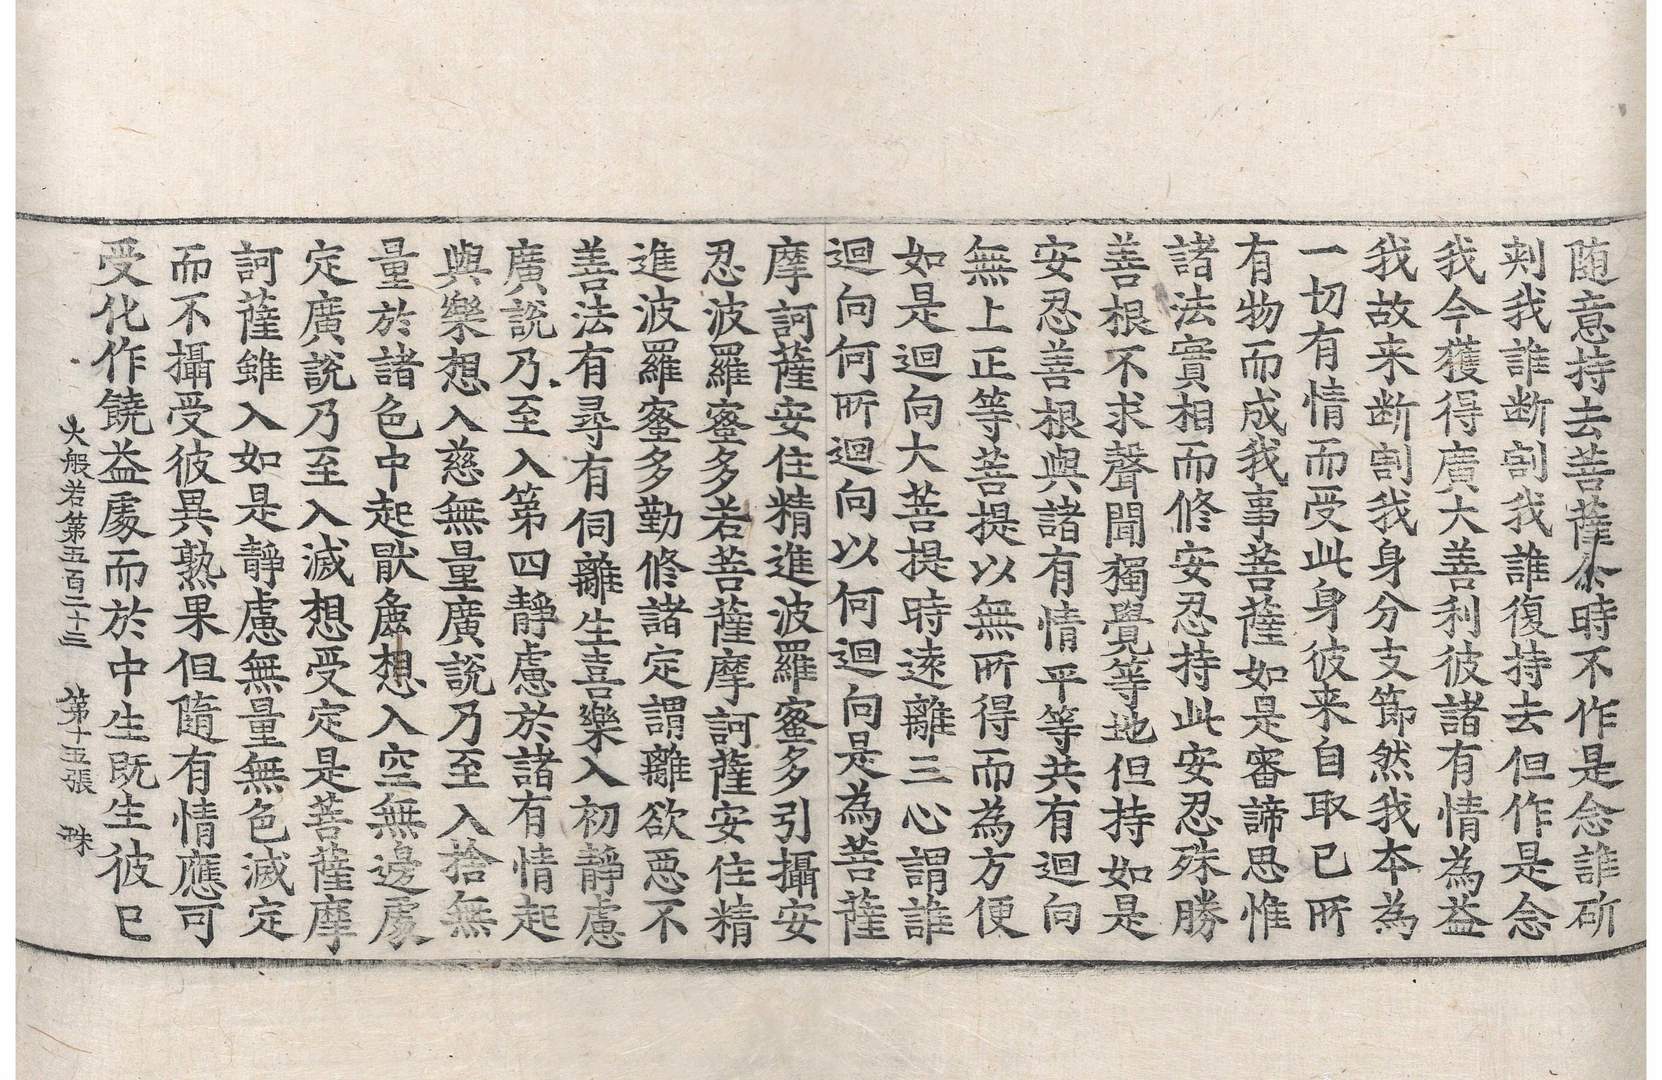 随意持去菩薩尒時不作是念誰斫
刾我誰断割我誰復持去但作是念
我今獲得廣大善利彼諸有情為益
我故来断割我身分支節然我本為
一切有情而受此身彼来自取已所
有物而成我事菩薩如是審諦思惟
諸法實相而修安忍持此安忍殊勝
善根不求聲聞獨覺等地但持如是
安忍善根與諸有情平等共有迴向
無上正等菩提以無所得而為方便
如是迴向大菩提時遠離三心謂誰
迴向何所迴向以何迴向是為菩薩
摩訶薩安住精進波羅蜜多引攝安
忍波羅蜜多若菩薩摩訶薩安住精
進波羅蜜多勤修諸定謂離欲惡不
善法有尋有伺離生喜樂入初靜慮
廣說乃至入第四靜慮於諸有情起
與樂想入慈無量廣說乃至入捨無
量於諸色中起猒麁想入空無邊處
定廣說乃至入滅想受定是菩薩摩
訶薩雖入如是靜慮無量無色滅定
而不攝受彼異熟果但隨有情應可
受化作饒益處而於中生既生彼已
大般若第五百二十三 第十五張 珠